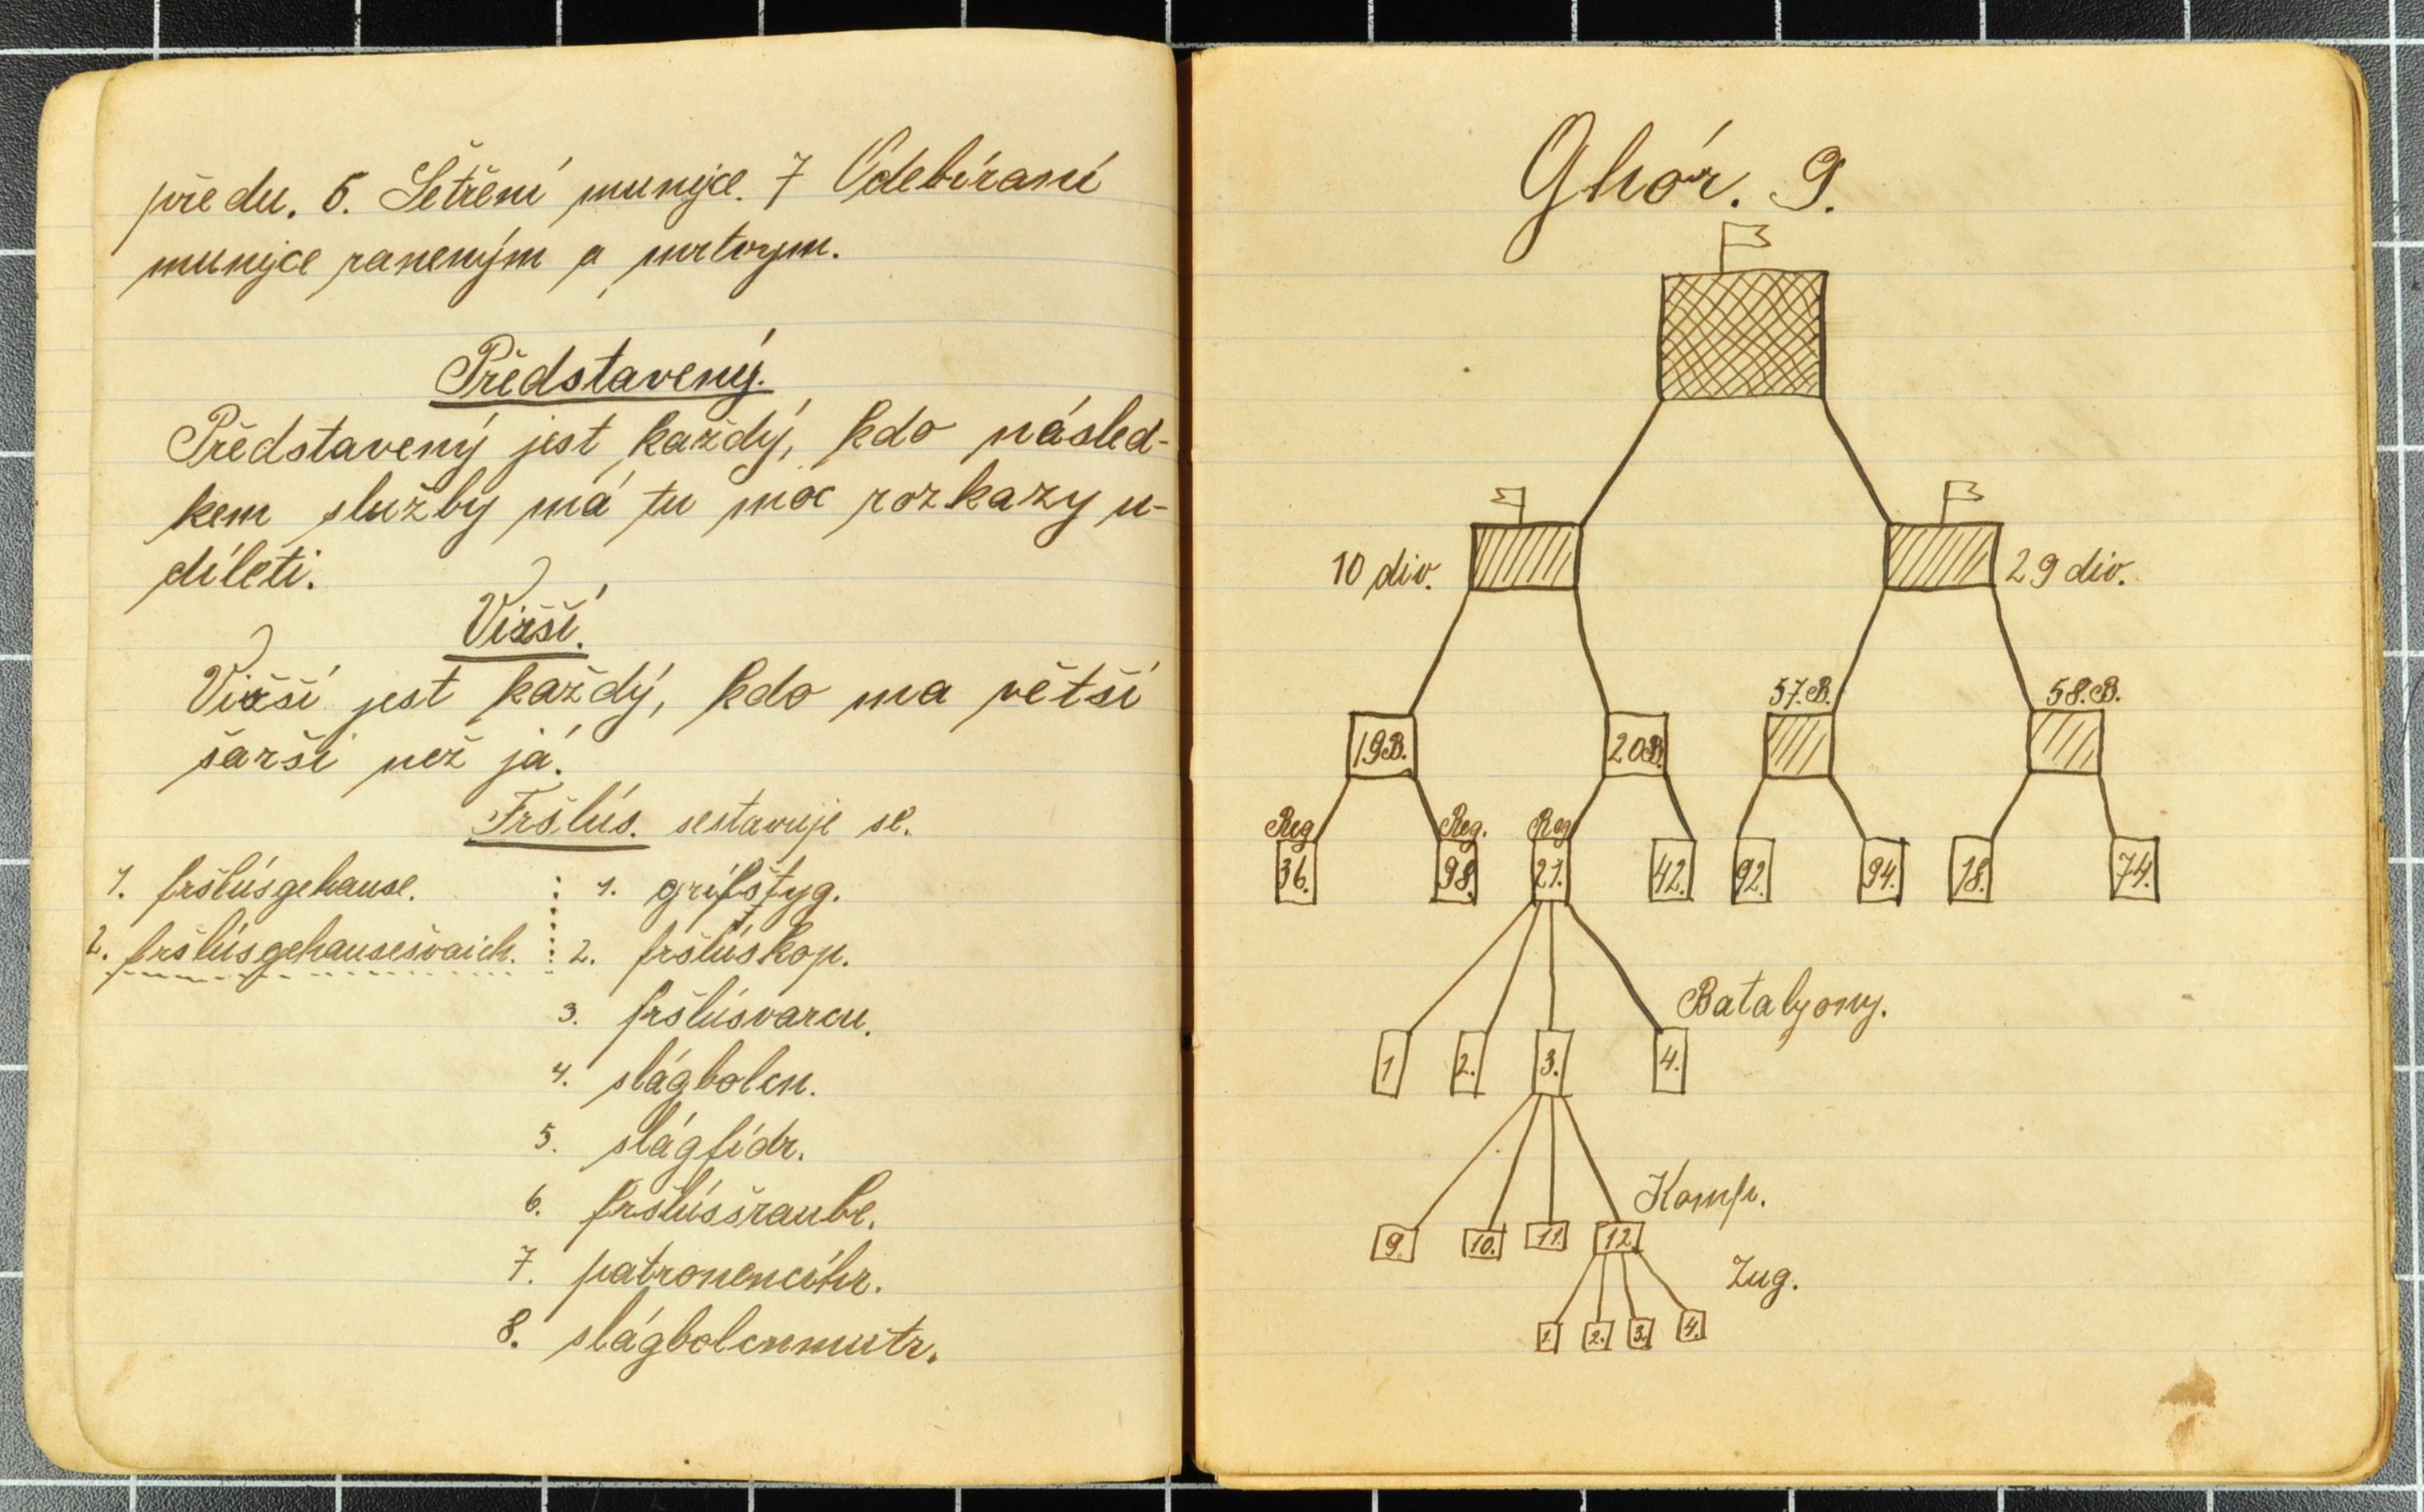 předu. 6. Šetření munijce. 7 Odebíraní
munijce raneným a mrtvym.
Představený.
Představený jest každý, kdo násled-
kem služby má tu moc rozkazy u-
díleti.
Vižší.
Vižší jest každý, kdo ma větší
šarši než já.
Fršlús. sestavuje se.
1. fršlúsgehause. : 1. grifštyg.
2. fršlúsgehausešvaich. : 2. fršlúskop.
3. fršlúsvarcn.
4. slágbolcn.
5. slágfídr.
6. fršlússraube.
7. patronencíhr.
8. slágbolcnmutr.
Ghór. 9.
10 div. 29 div.
57.B. 58.B.
19B. 20B.
Reg. Reg. Reg
36. 98. 21. 42. 92. 94. 18. 74.
Batalyony.
1 2. 3. 4.
Komp.
9. 10. 11. 12.
Zug.
1. 2. 3. 4.